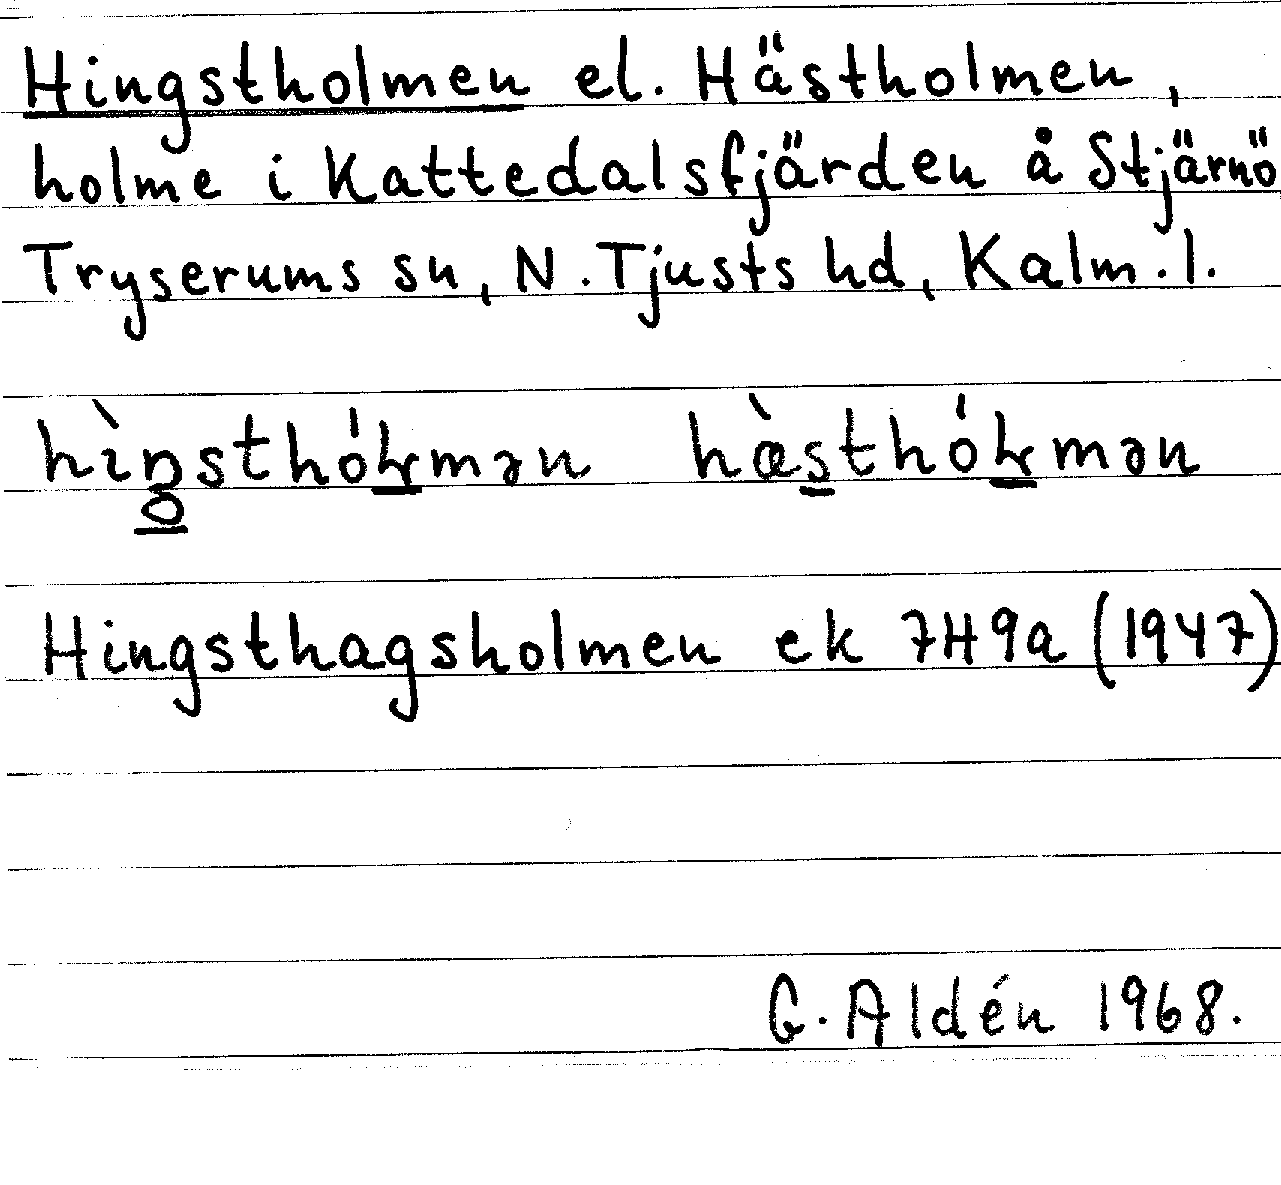 Hingstholmen el. Hästholmen,
holme i Kattedalsfjärden å Stjärnö
Tryserums sn, N. Tjusts hd, Kalm. l.
Hingsthagsholmen ek 7H9a (1947)
G. Aldén 1968.